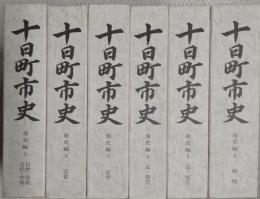 十日町市史
通史編 1
自然・原始
古代・中世
十日町市史
通史編 2
近世
十日町市史
通史編 3
近世
十日町市史
通史編 4
近・現代一
十日町市史
通史編 5
近・現代二
十日町市史
通史編 6